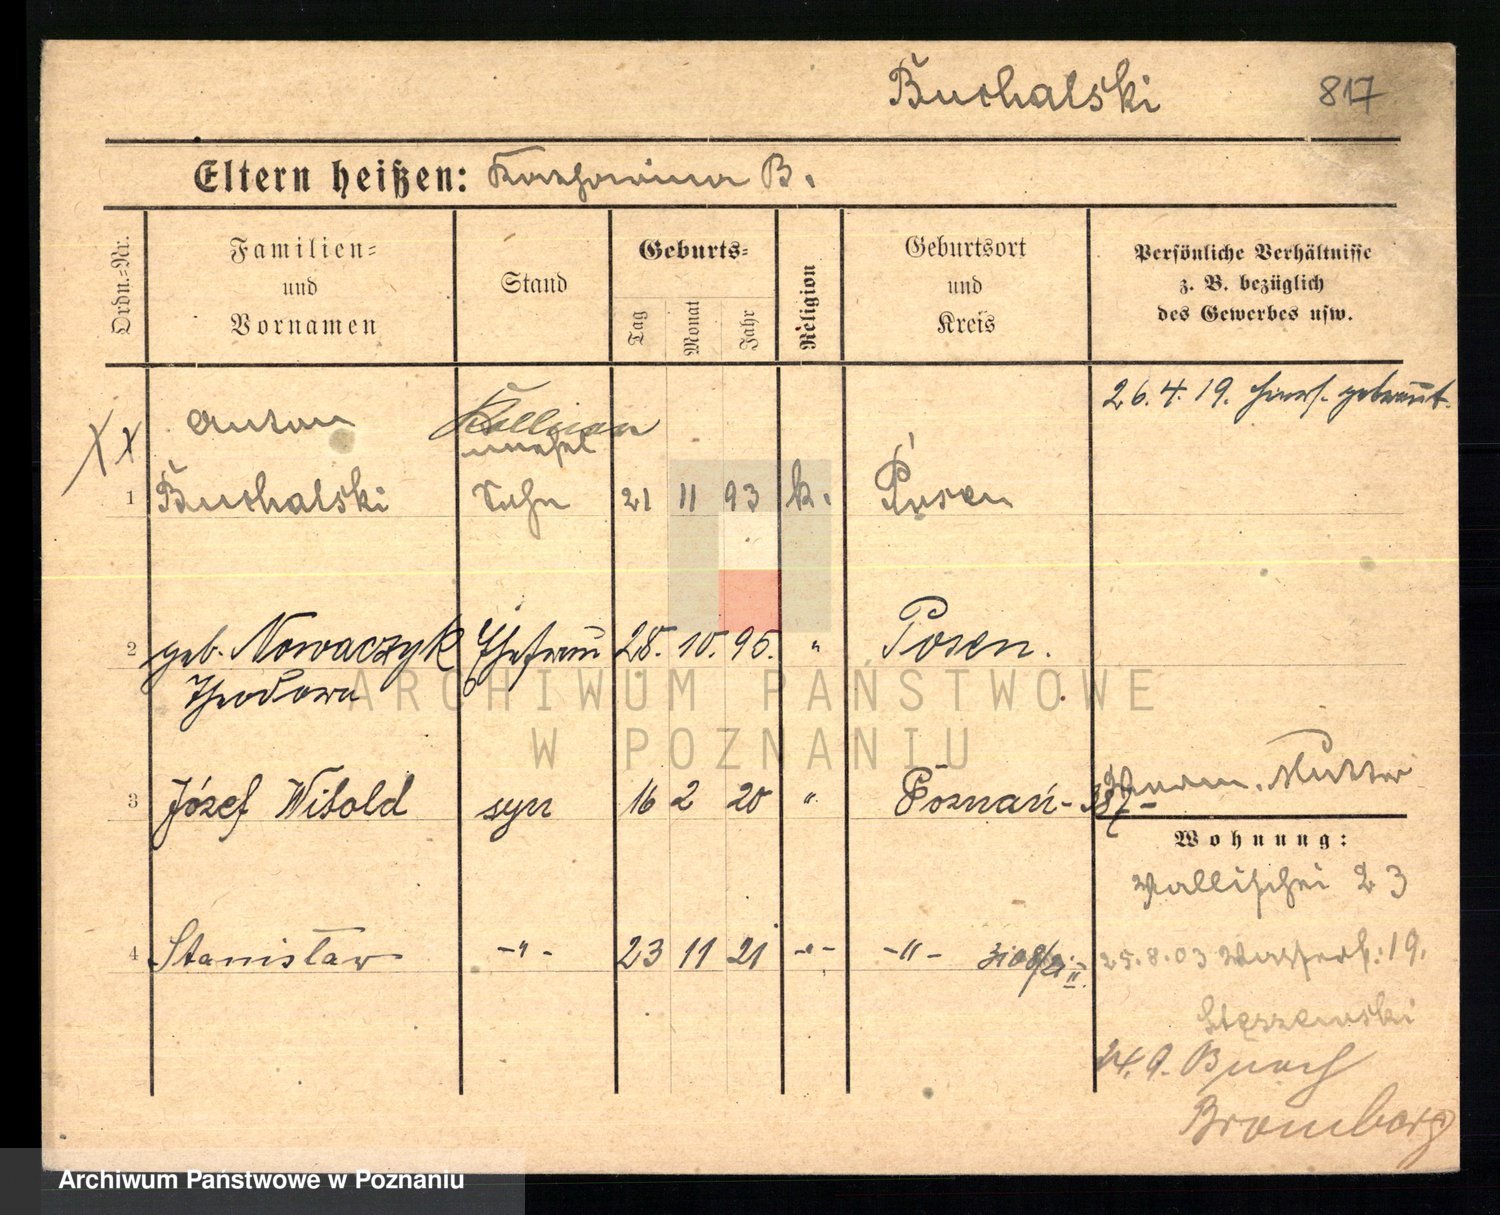 Buchalski 817
Eltern heißen: Katharina B.
Ordn.-Nr.
Familien- und Vornamen
Stand
Geburts-
Tag
Monat
Jahr
Religion
Geburtsort und Kreis
Persönliche Verhältnisse z. B. bezüglich des Gewerbes usw.
26.4.19.
XX
Anton Kellner
unehel
1 Buchalski Sohn 21 11 93 k. Posen
2 geb. Nowaczyk Ehefrau 28. 10. 95. " Posen.
Theodora
3 Józef Witold syn 16 2 20 " Poznań - 387 -
Mutter
Wohnung:
Wallischei 23
4 Stanisław -"- 23 11 21 -"- -"-
25.8.03 Wasserst: 19.
Stęszewski
24.9. Buch
Bromberg
ARCHIWUM PAŃSTWOWE
W POZNANIU
Archiwum Państwowe w Poznaniu